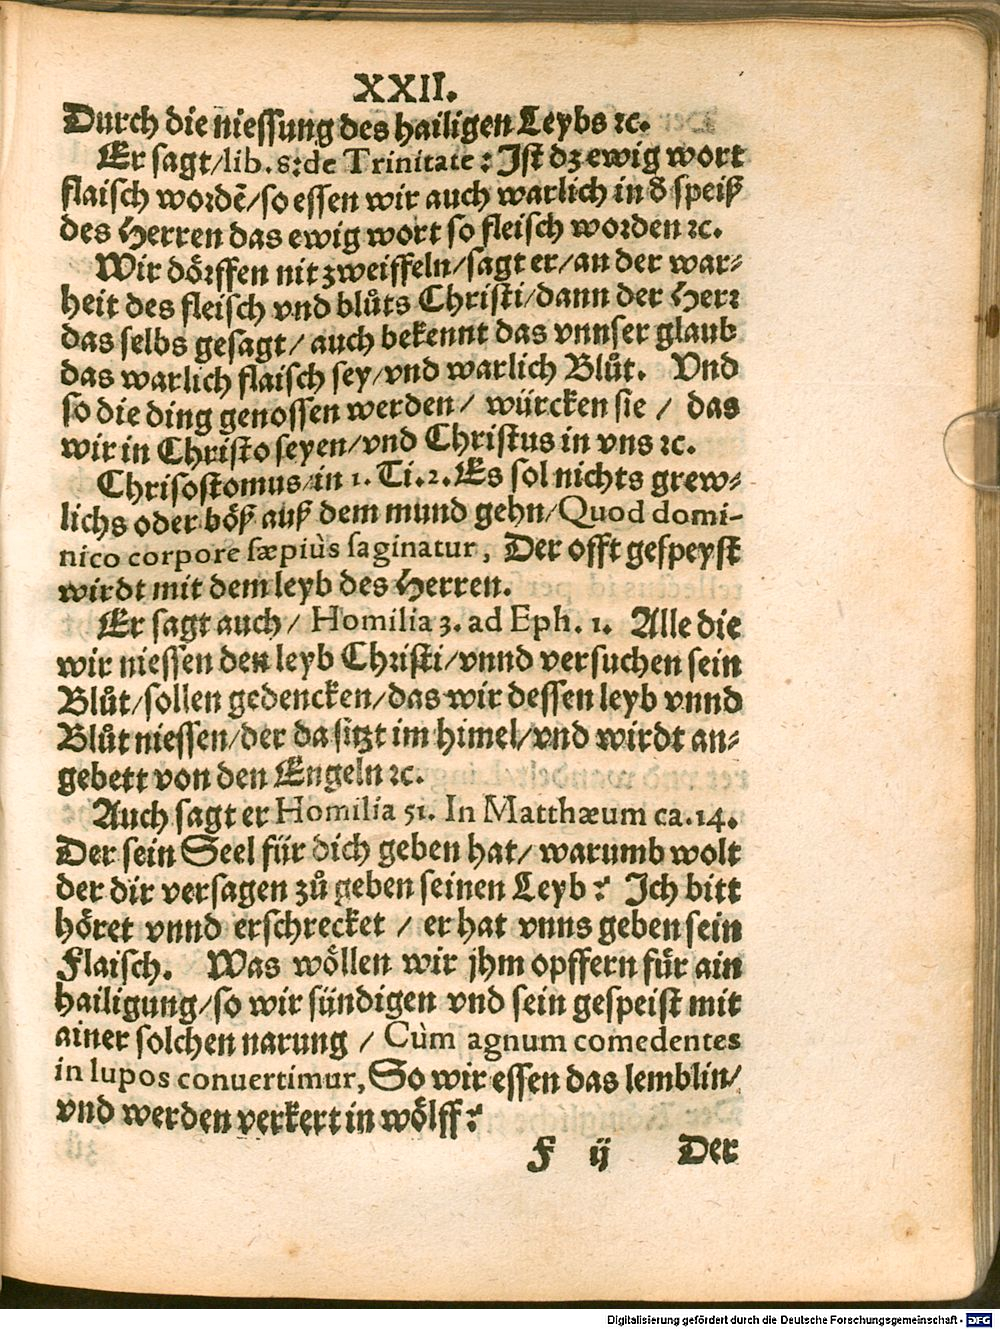 XXII.
Durch die niessung des hailigen Leybs ꝛc.
Er sagt/lib. 8: de Trinitate : Ist dz ewig wort
flaisch wordē/so essen wir auch warlich in d̕ speiß
des Herren das ewig wort so fleisch worden ꝛc.
Wir dörffen nit zweiffeln/sagt er/an der war⸗
heit des fleisch vnd blůts Christi/dann der Herr
das selbs gesagt/ auch bekennt das vnnser glaub
das warlich flaisch sey/vnd warlich Blůt. Vnd
so die ding genossen werden/ würcken sie / das
wir in Christo seyen/vnd Christus in vns ꝛc.
Chrisostomus/in 1. Ti. 2. Es sol nichts grew⸗
lichs oder böß auß dem mund gehn/Quod domi-
nico corpore sæpiùs saginatur, Der offt gespeyst
wirdt mit dem leyb des Herren.
Er sagt auch/ Homilia 3. ad Eph. 1. Alle die
wir niessen den leyb Christi/vnnd versuchen sein
Blůt/sollen gedencken/das wir dessen leyb vnnd
Blůt niessen/der da sitzt im himel/vnd wirdt an⸗
gebett von den Engeln ꝛc.
Auch sagt er Homilia 51. In Matthæum ca. 14.
Der sein Seel für dich geben hat/ warumb wolt
der dir versagen zů geben seinen Leyb? Ich bitt
höret vnnd erschrecket / er hat vnns geben sein
Flaisch. Was wöllen wir jhm opffern für ain
hailigung/so wir sündigen vnd sein gespeist mit
ainer solchen narung / Cùm agnum comedentes
in lupos conuertimur, So wir essen das lemblin/
vnd werden verkert in wölff?
F ij Der
Digitalisierung gefördert durch die Deutsche Forschungsgemeinschaft - DFG